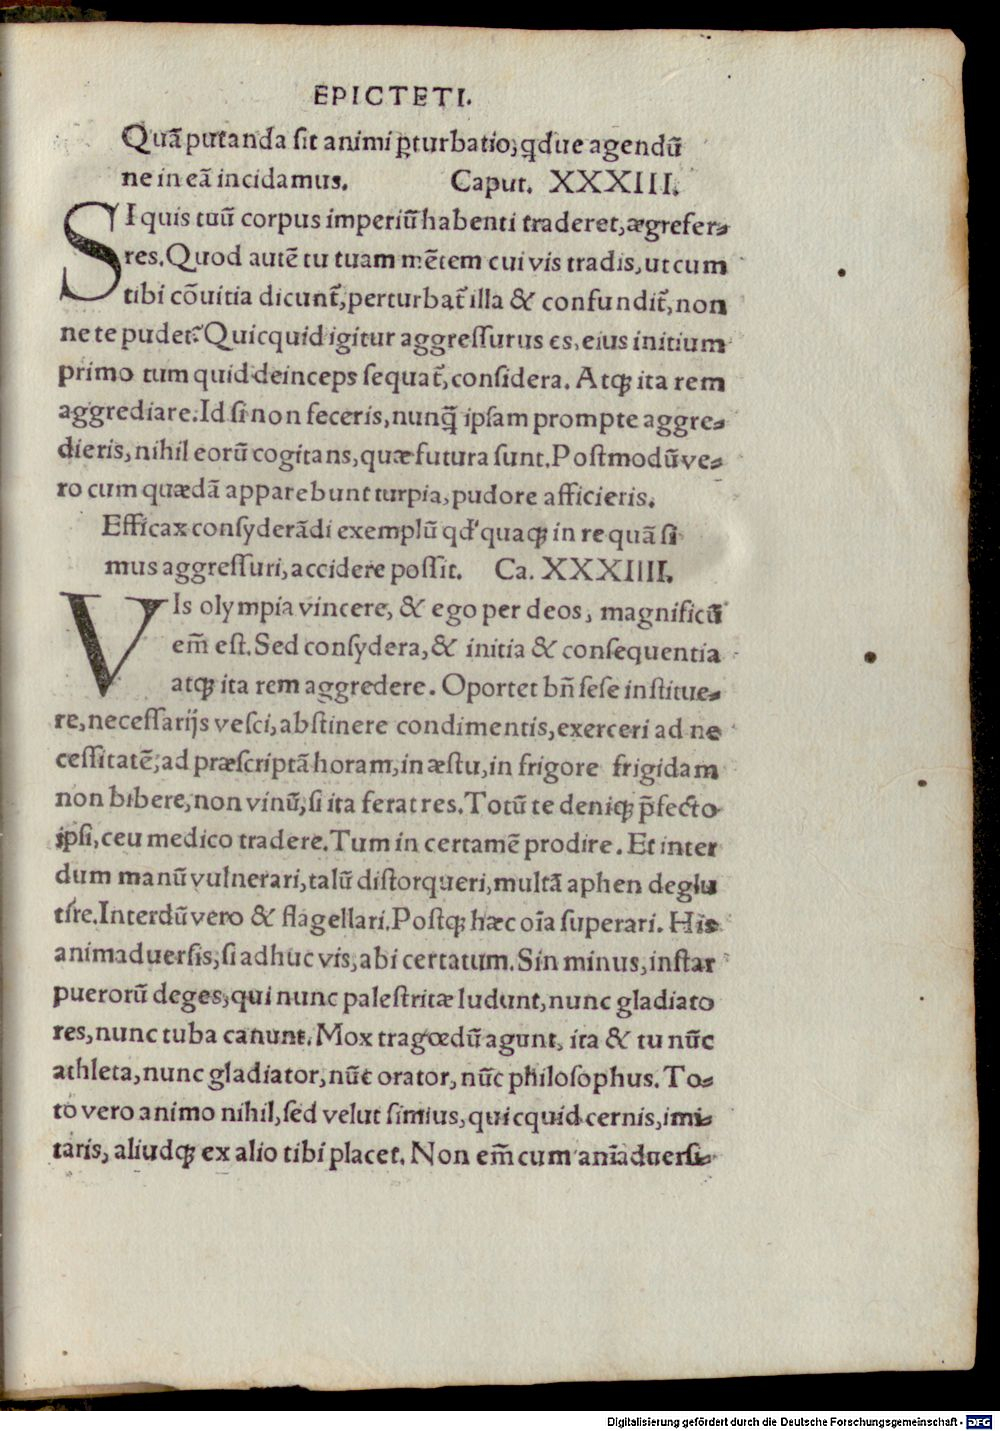 EPICTETI.
Quā putanda sit animi ꝑturbatio, qdue agendū
ne in eā incidamus. Caput. XXXIII.
SI quis tuū corpus imperiū habenti traderet, ægrefer-
res. Quod autē tu tuam mētem cui vis tradis, ut cum
tibi cōuitia dicunt̃, perturbat̃ illa & confundit̃, non
ne te pudet? Quicquid igitur aggressurus es, eius initium
primo tum quid deinceps sequat̃, considera. Atqꝫ ita rem
aggrediare. Id si non feceris, nunq̄ ipsam prompte aggre-
dieris, nihil eorū cogitans, quæ futura sunt. Postmodū ve-
ro cum quædā apparebunt turpia, pudore afficieris.
Efficax consyderādi exemplū qd' quaqꝫ in re quā si
mus aggressuri, accidere possit. Ca. XXXIIII.
VIs olympia vincere, & ego per deos, magnificū
em̄ est. Sed consydera, & initia & consequentia
atqꝫ ita rem aggredere. Oportet bn̄ sese instituе-
re, necessarijs vesci, abstinere condimentis, exerceri ad ne
cessitatē, ad præscriptā horam, in æstu, in frigore frigidam
non bibere, non vinū, si ita ferat res. Totū te deniqꝫ p̄fecto
ipsi, ceu medico tradere. Tum in certamē prodire. Et inter
dum manū vulnerari, talū distorqueri, multā aphen deglu
tire. Interdū vero & flagellari. Postqꝫ hæc oīa superari. His
animaduersis, si adhuc vis, abi certatum. Sin minus, instar
puerorū deges, qui nunc palestritæ ludunt, nunc gladiato
res, nunc tuba canunt. Mox tragœdū agunt, ita & tu nūc
athleta, nunc gladiator, nūc orator, nūc philosophus. To-
to vero animo nihil, sed velut simius, quicquid cernis, imi-
taris, aliudqꝫ ex alio tibi placet. Non em̄ cum anīaduersi-
Digitalisierung gefördert durch die Deutsche Forschungsgemeinschaft - DFG